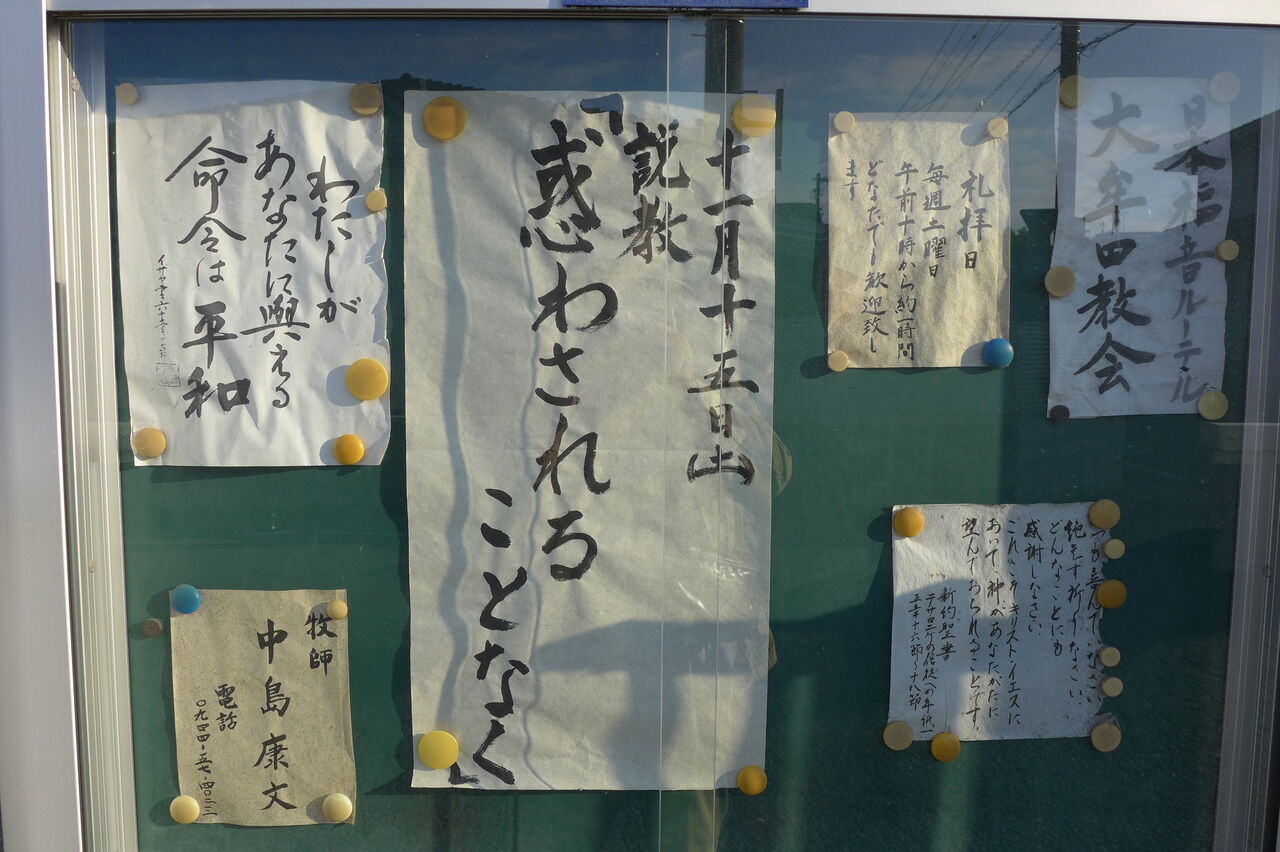 日本福音ルーテル
大牟田教会
礼拝日
毎週土曜日
午前十時から約一時間
どなたでも歓迎致し
ます
十一月十五日㈯
説教
「惑わされる
ことなく」
わたしが
あなたに與える
命令は平和
イザヤ書六十章十七節
いつも喜んでいなさい
絶えず祈りなさい
どんなことにも
感謝しなさい
これこそキリスト・イエスに
あいて神があなたがたに
望んでおられることです。
新約聖書
テサロニケの信徒への手紙一
五章十六節〜十八節
牧師
中島康文
電話
〇九四四-五七-四〇三二